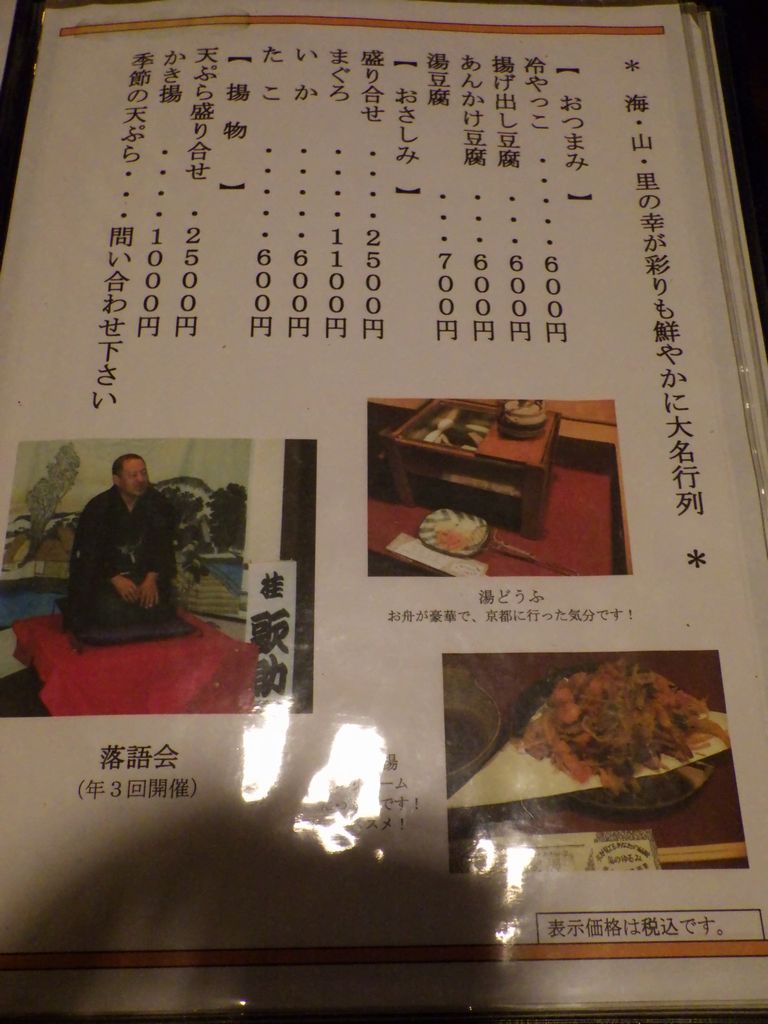 ＊ 海・山・里の幸が彩りも鮮やかに大名行列 ＊
【 おつまみ 】
冷やっこ ・・・・・６００円
揚げ出し豆腐 ・・・６００円
あんかけ豆腐 ・・・６００円
湯豆腐 ・・・７００円
【 おさしみ 】
盛り合せ ・・・・２５００円
まぐろ ・・・・１１００円
いか ・・・・・６００円
たこ ・・・・・６００円
【 揚物 】
天ぷら盛り合せ ・２５００円
かき揚 ・・・・１０００円
季節の天ぷら・・・問い合わせ下さい
湯どうふ
お舟が豪華で、京都に行った気分です！
桂 歌助
落語会
（年３回開催）
揚
ーム
です！
スメ！
表示価格は税込です。